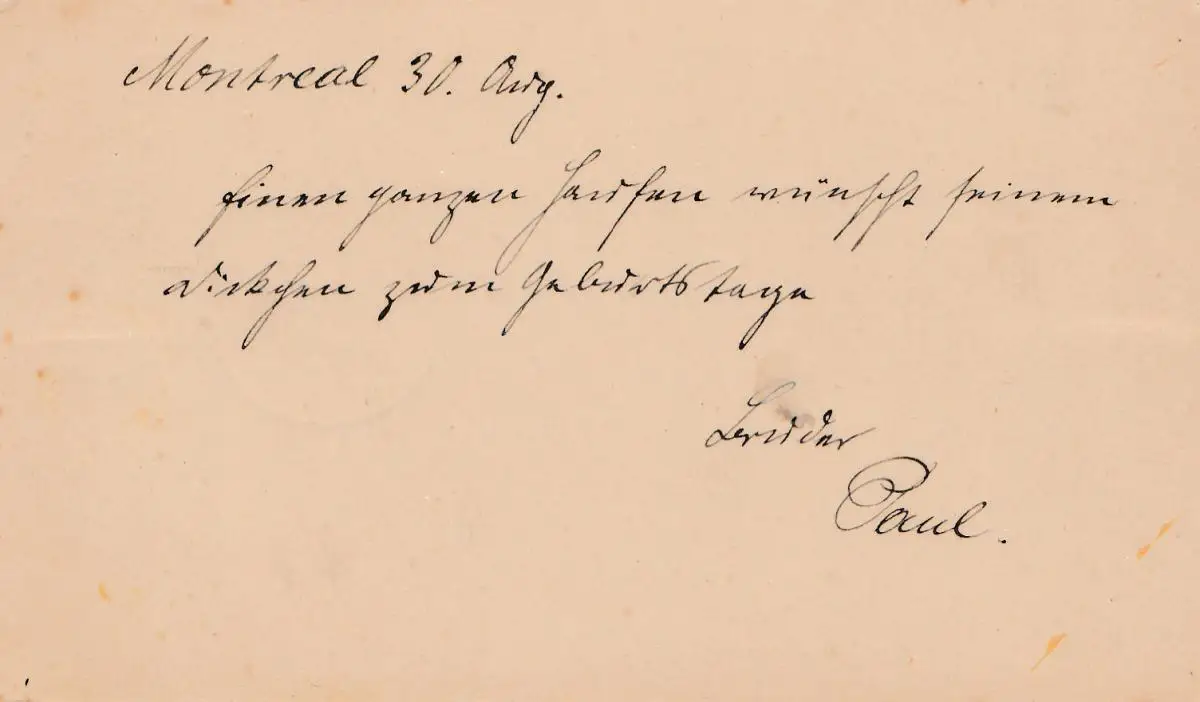 Montreal 30. Aug.
Einen ganzen Haufen wünscht seinem
Dickchen zum Geburtstage
Bruder
Paul.